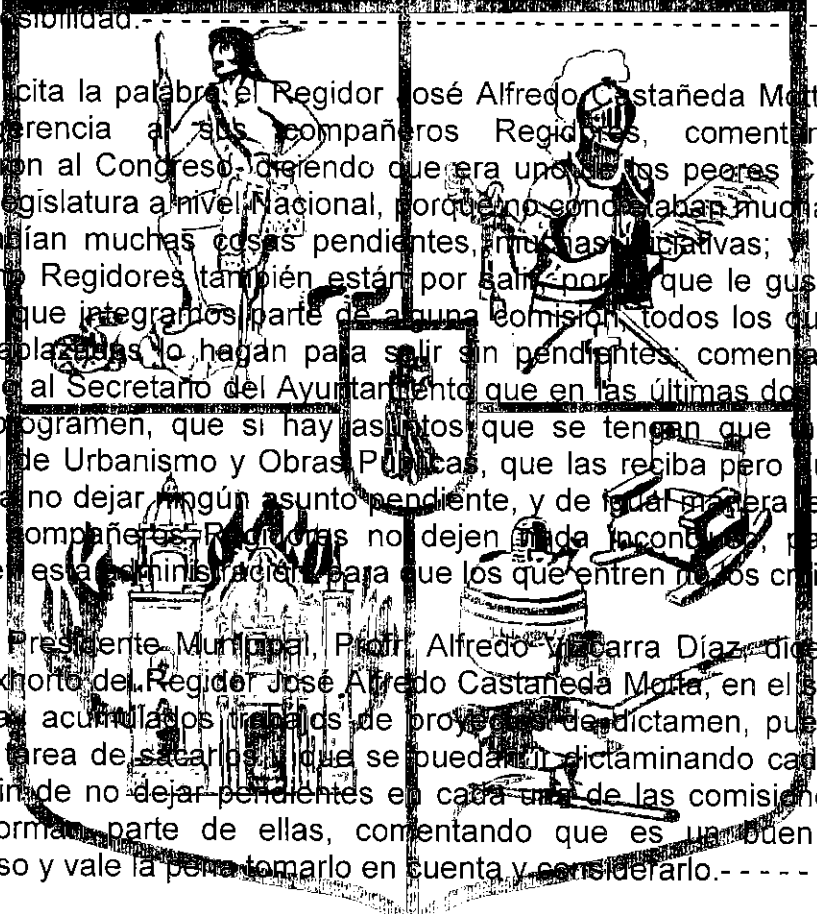 sibilidad.- - - - - - - - - - - - - - - - - - - - - - - -
cita la palabra el Regidor José Alfredo Castañeda Mott
erencia a sus compañeros Regidores, comentan
on al Congreso, diciendo que era uno de los peores C
egislatura a nivel Nacional, porque no concretaban mucha
ían muchas cosas pendientes, muchas iniciativas; y
Regidores también están por salir, por que le gus
que integramos parte de alguna comisión, todos los
aplazados lo hagan para salir sin pendientes; comenta
al Secretario del Ayuntamiento que en las últimas do
programen, que si hay asuntos que se tengan que
de Urbanismo y Obras Públicas, que las reciba pero
no dejar ningún asunto pendiente, y de igual manera
compañeros Regidores no dejen nada inconcluso, pa
esta administración, para que los que entren no los
Presidente Municipal, Profr. Alfredo Vizcarra Díaz, dice
xhorto del Regidor José Alfredo Castañeda Motta, en el s
acumulados trabajos de proyectos de dictamen, pue
tarea de sacarlos y que se puedan ir dictaminando cad
in de no dejar pendientes en cada una de las comisione
orman parte de ellas, comentando que es un buen
so y vale la pena tomarlo en cuenta y considerarlo.- - - - -